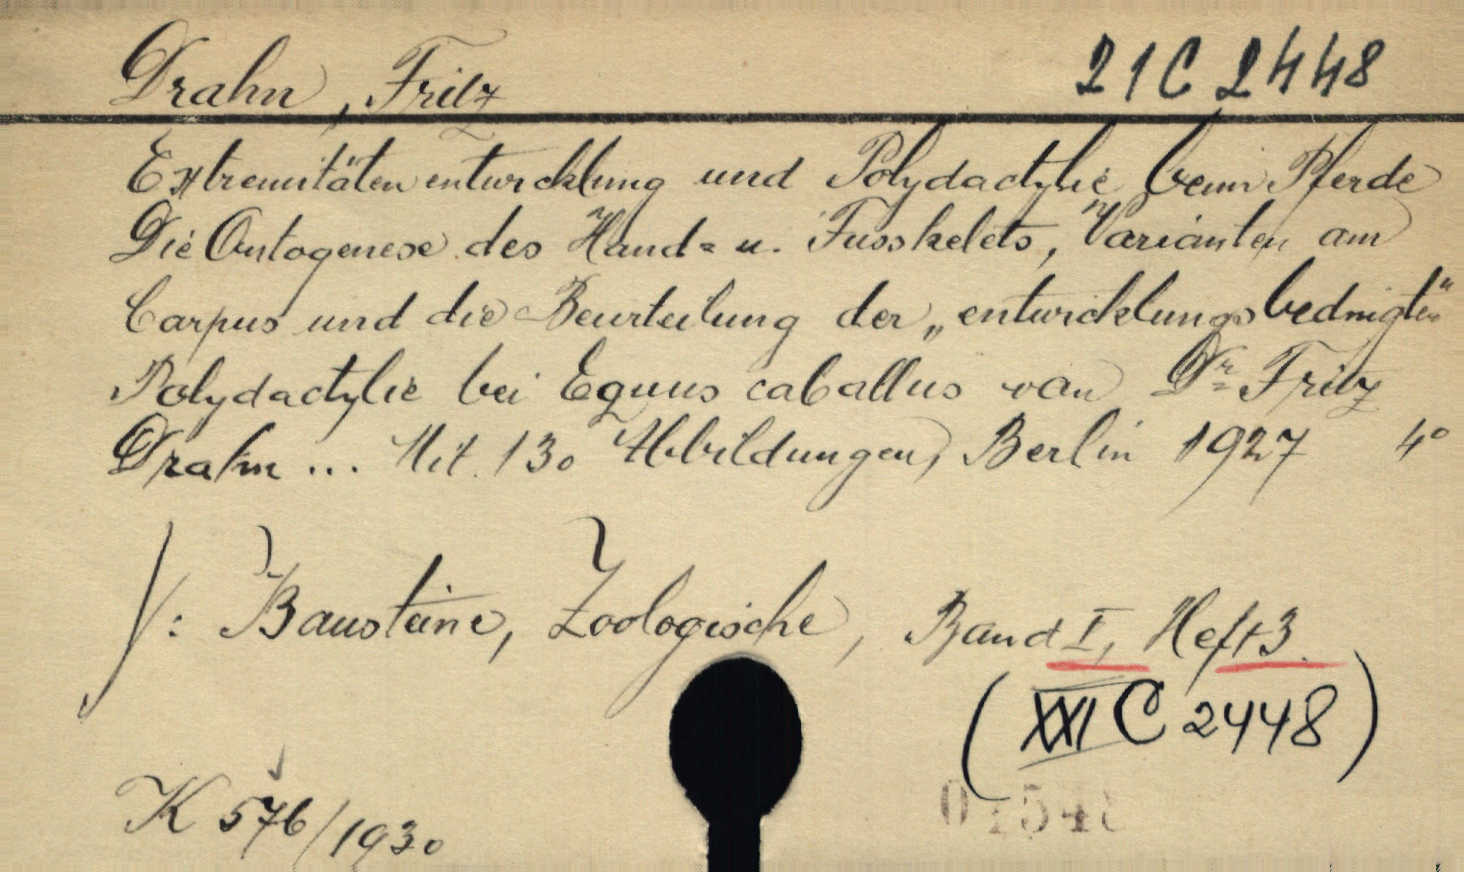 Drahn, Fritz 21 C 2448
Extremitätenentwicklung und Polydactylie beim Pferde
Die Ontogenese des Hand= u. Fusskelets, Varianten am
Carpus und die Beurteilung der „entwicklungsbedingten“
Polydactylie bei Equus caballus von Dr Fritz
Drahn ... Mit 130 Abbildungen, Berlin 1927 4°
/: Bausteine, Zoologische, Band I, Heft 3.
(XXI C 2448)
K 576/1930